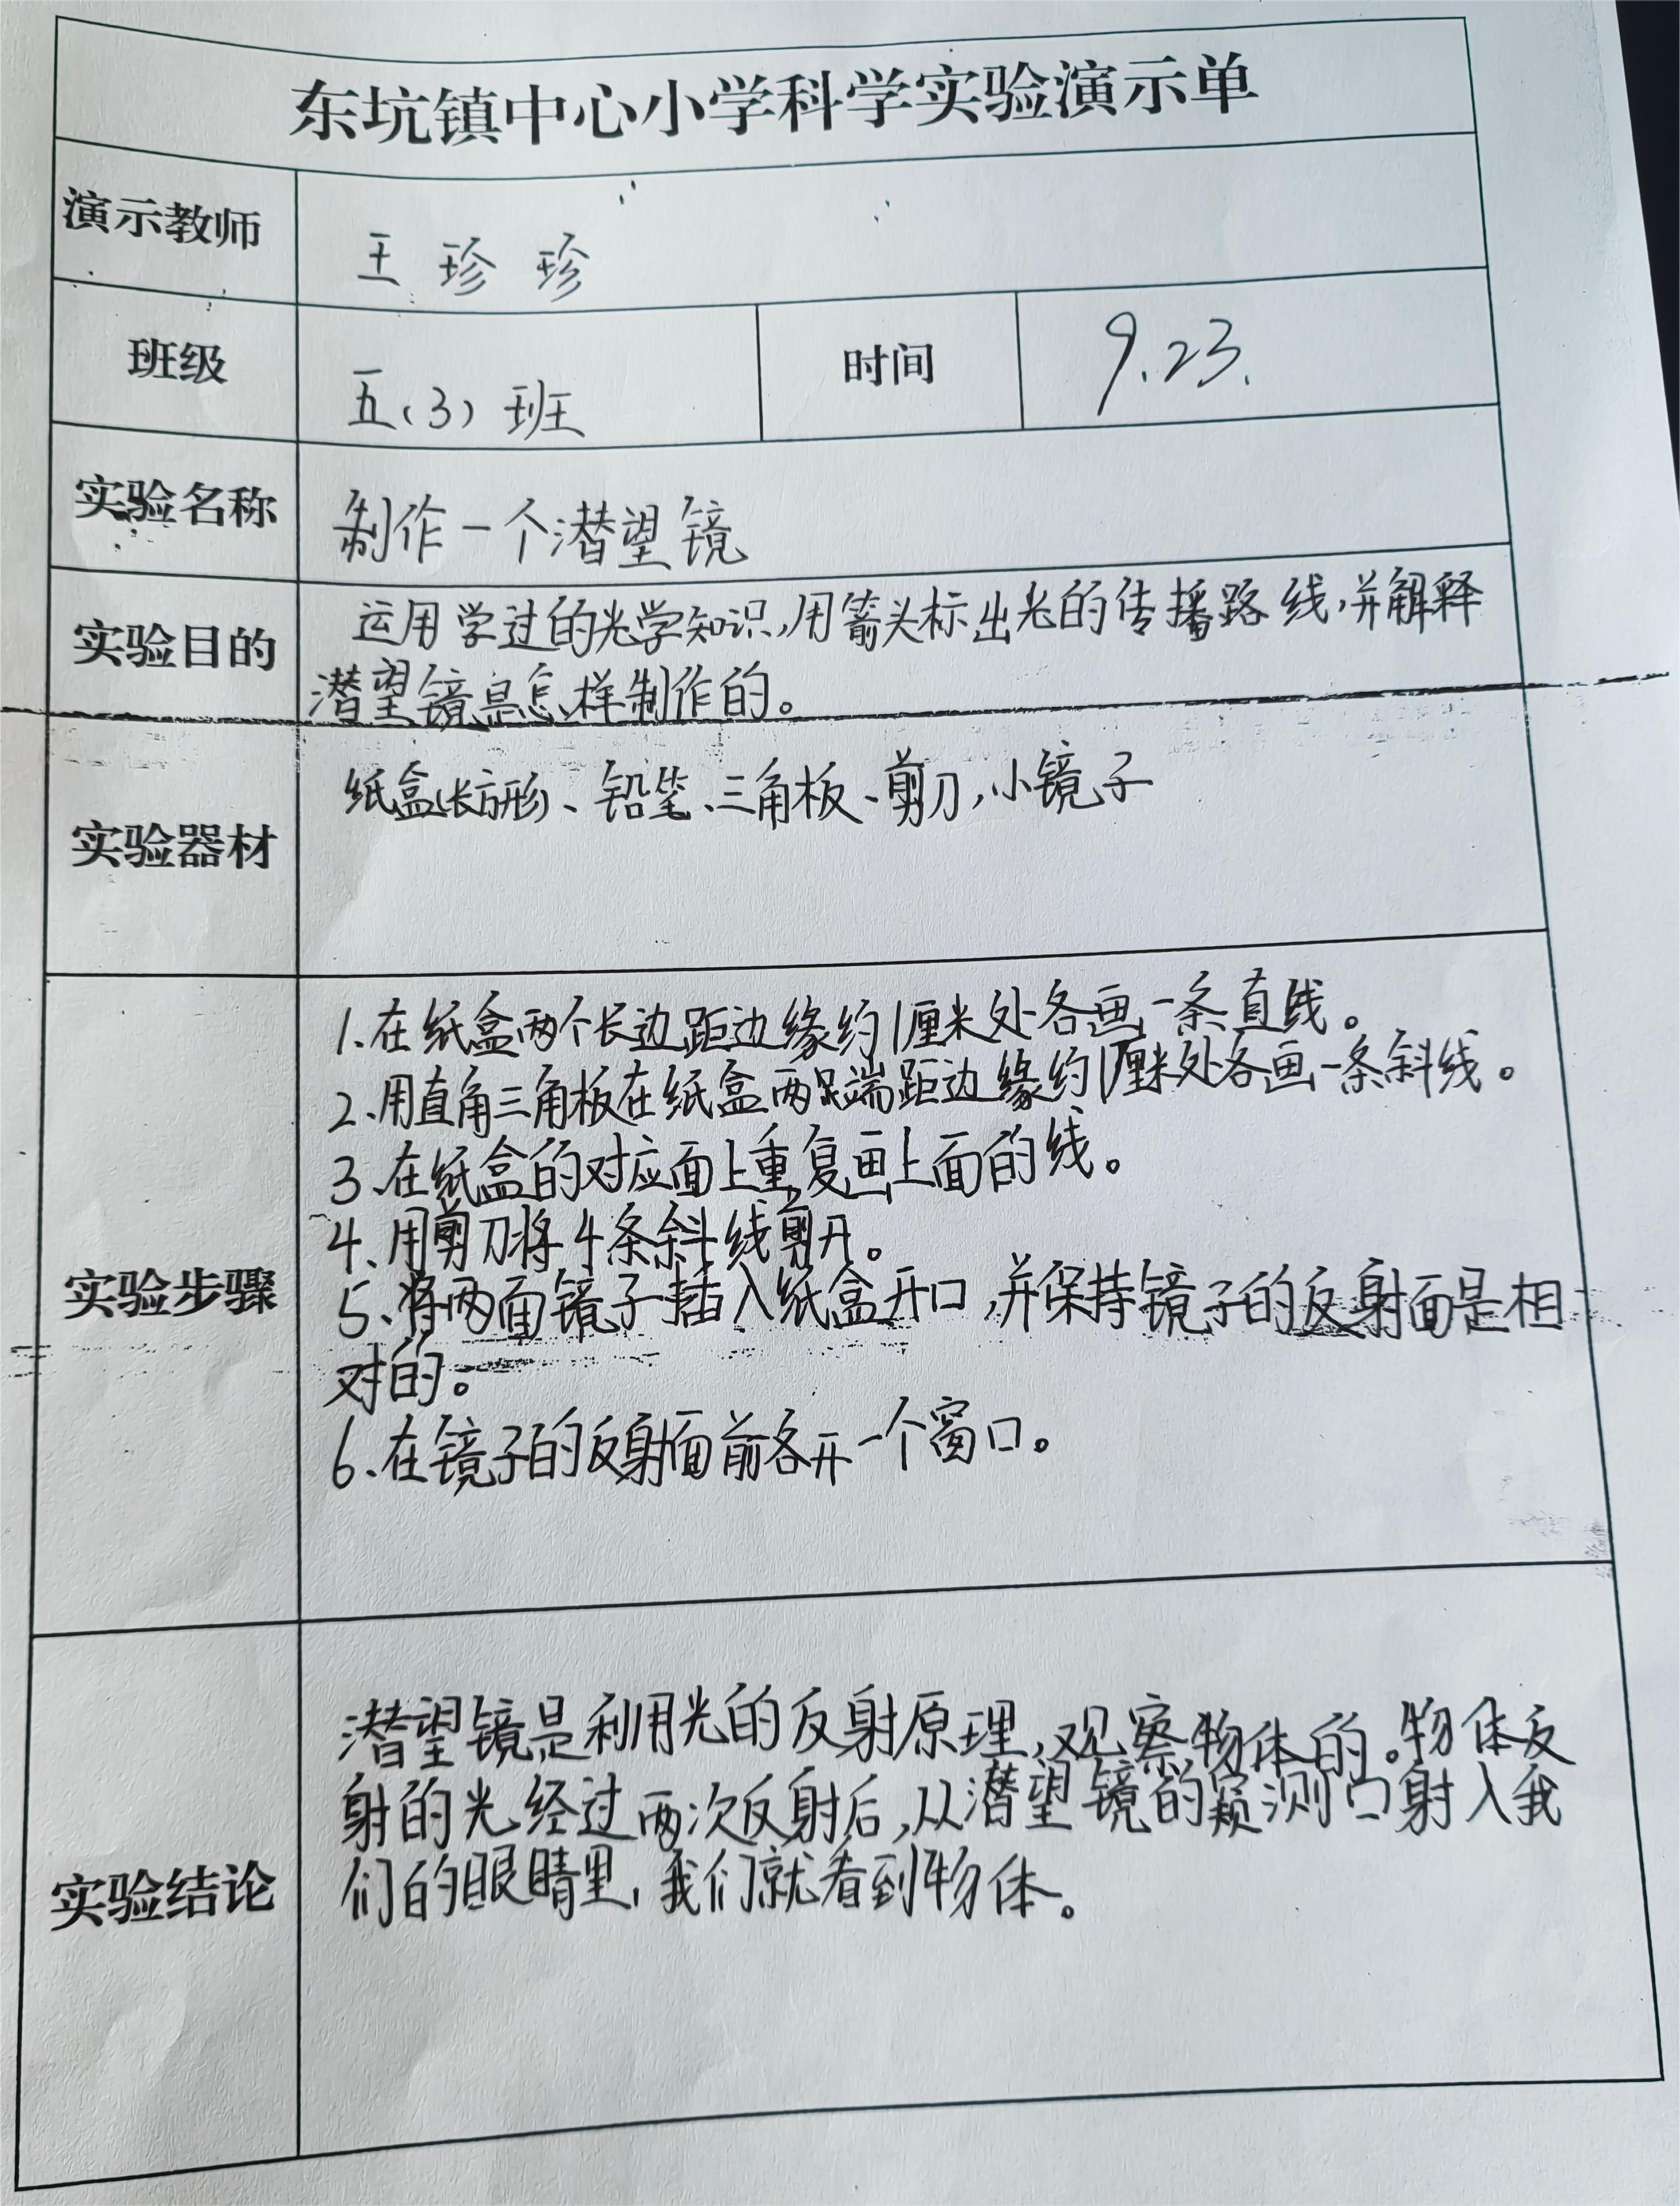 东坑镇中心小学科学实验演示单
演示教师
王珍珍
班级
五(3)班
时间
9.23.
实验名称
制作一个潜望镜
实验目的
运用学过的光学知识,用箭头标出光的传播路线,并解释
潜望镜是怎样制作的。
实验器材
纸盒(长方形)、铅笔、三角板、剪刀,小镜子
实验步骤
1.在纸盒两个长边距边缘约1厘米处各画一条直线。
2、用直角三角板在纸盒两端距边缘约1厘米处各画一条斜线。
3、在纸盒的对应面上重复画上面的线。
4、用剪刀将4条斜线剪开。
5、将两面镜子插入纸盒开口,并保持镜子的反射面是相
对的。
6、在镜子的反射面前各开一个窗口。
实验结论
潜望镜是利用光的反射原理,观察物体的。物体反
射的光经过两次反射后,从潜望镜的窥测口射入我
们的眼睛里,我们就看到物体。